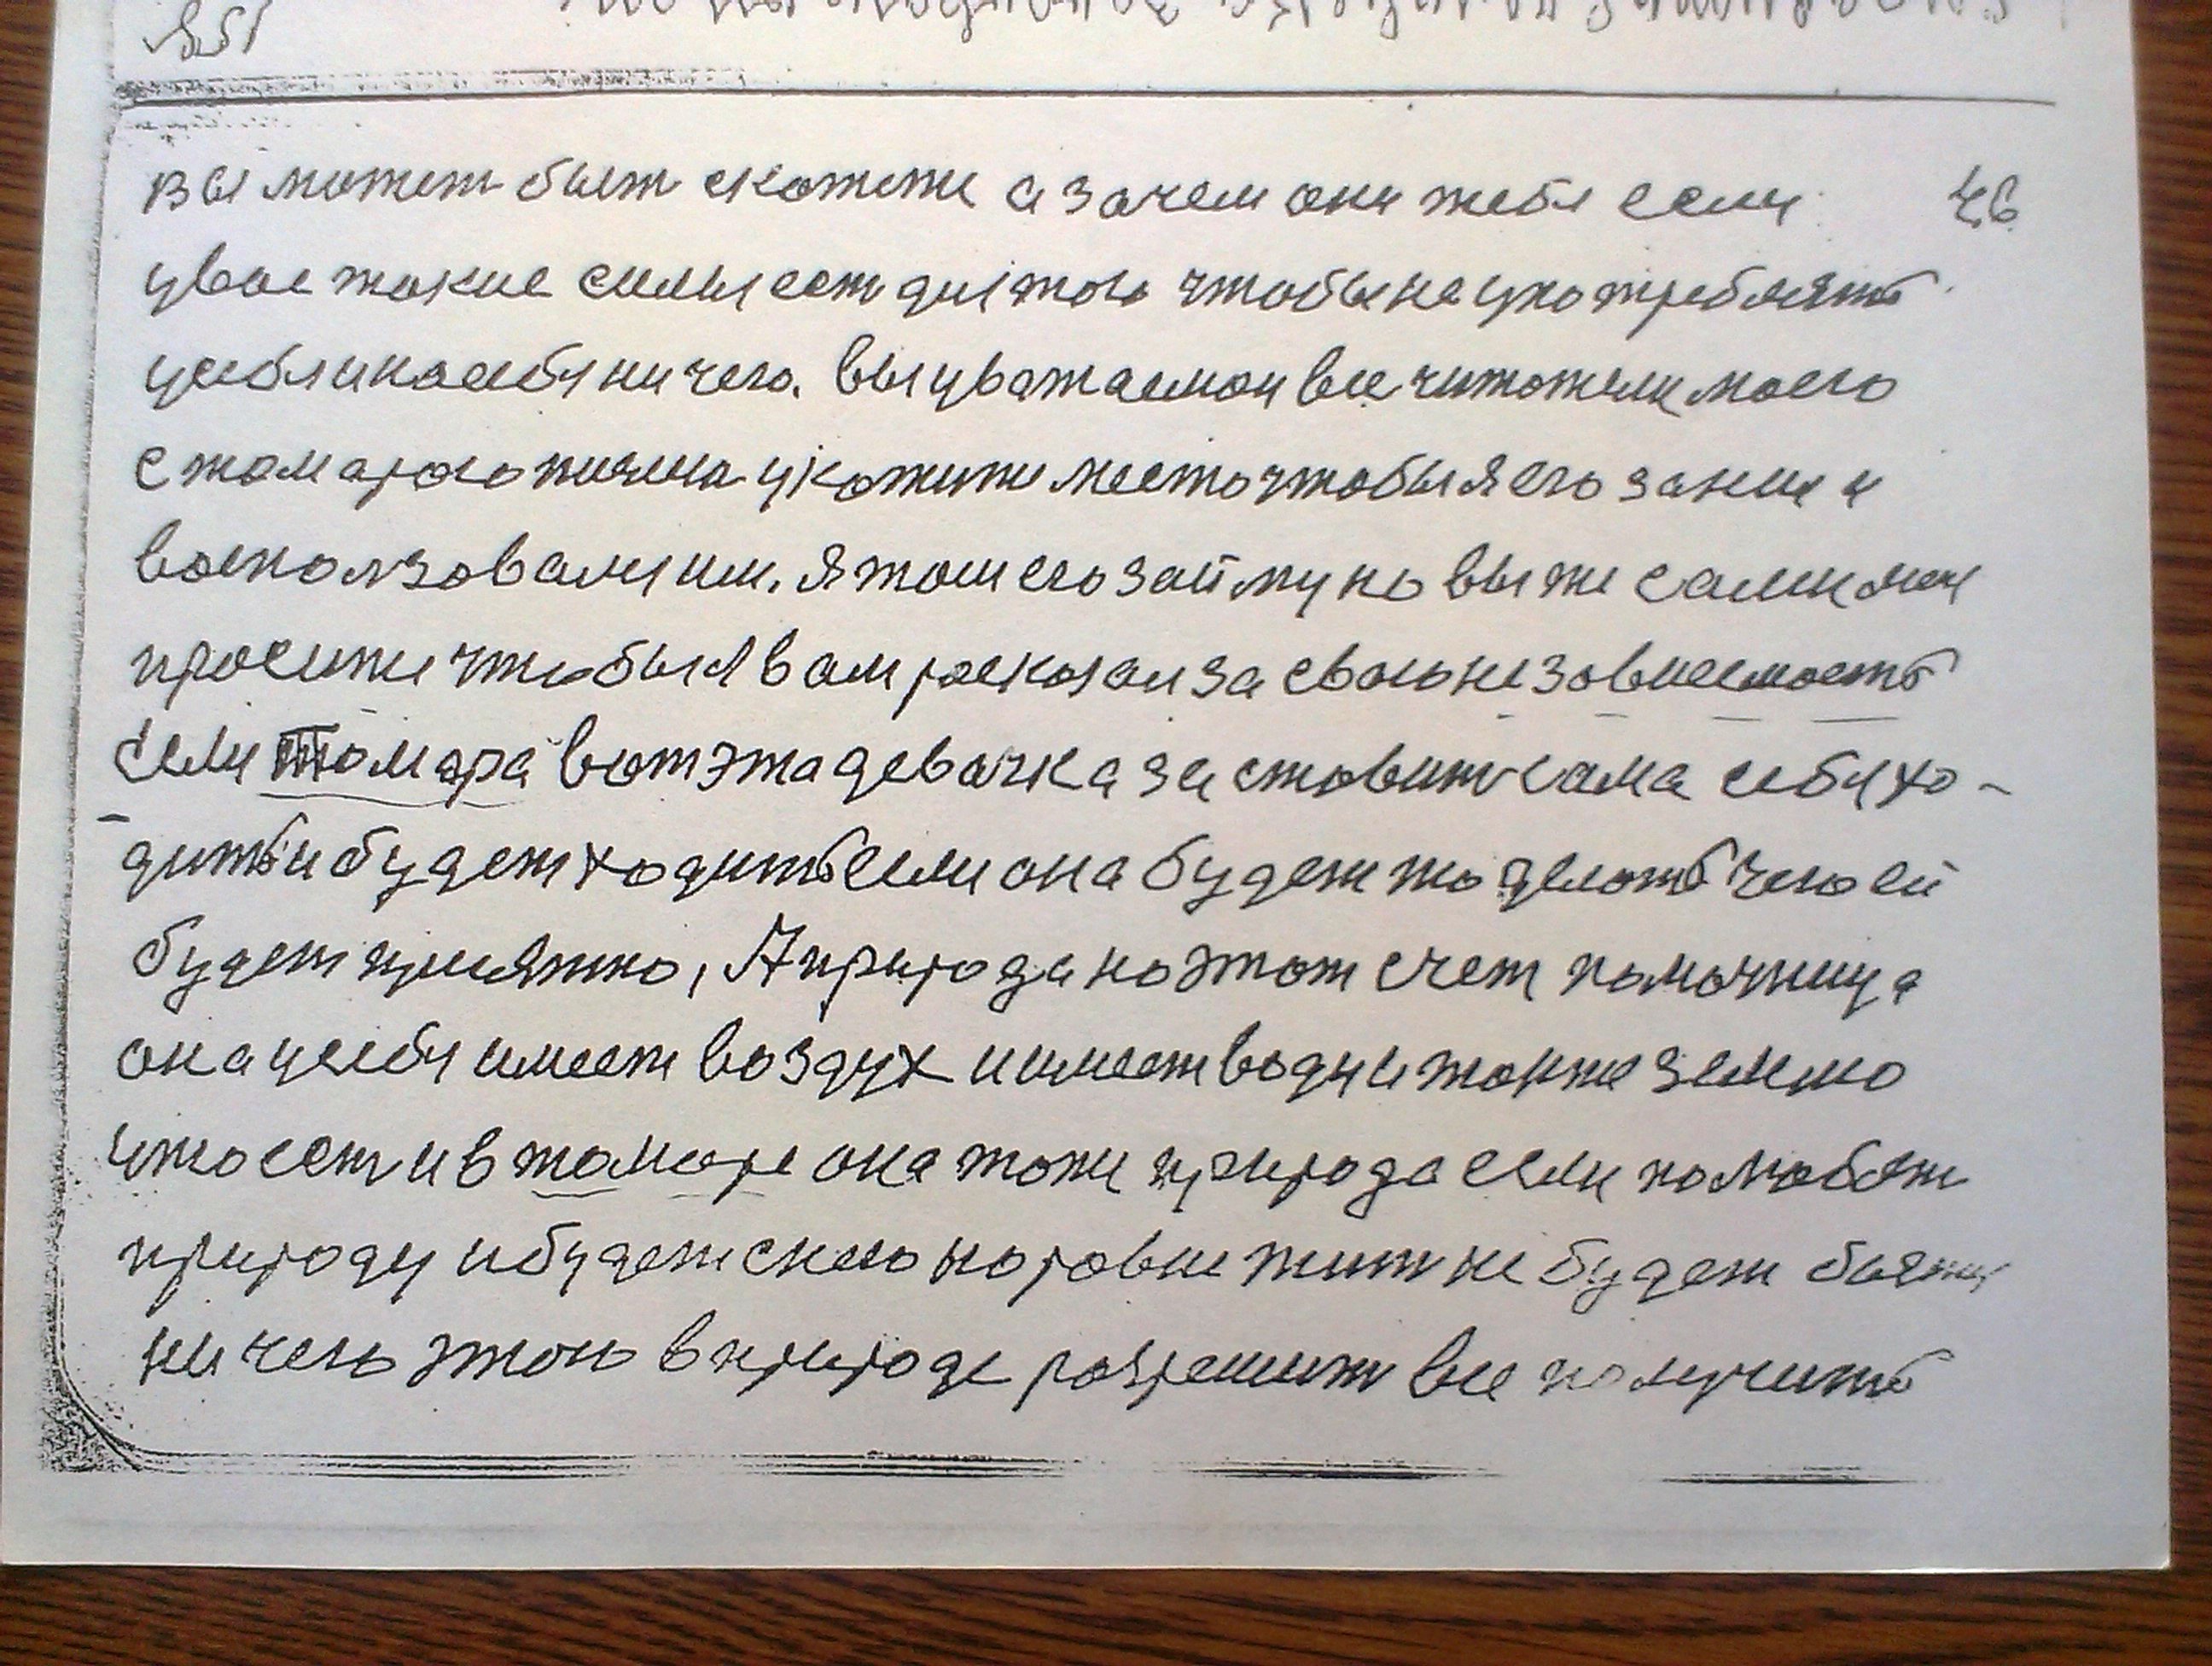 вы может быт скажете а зачем они тебе если 46
у вас такие силы ест для того чтобы не употреблять
у себя и на себя ничего. Вы уважаемаи все читатели моего
укажите место чтобы я его занял и
восползовался им. Я там его займу но вы же сами мен
просите чтобы я вам расказал за свою незовисемость
Если Томара вот эта девачка заставит сама себя хо-
дить и будет ходить если она будет то делать чего ей
будет приятно, А природа на этот счет помочница
она у себя имеет воздух и имеет воду и также землю
что ест и в томаре она тоже природа если полюбит
природу и будет с нею наровне жит не будет боятц
ничего этого в природе разрешит все получить